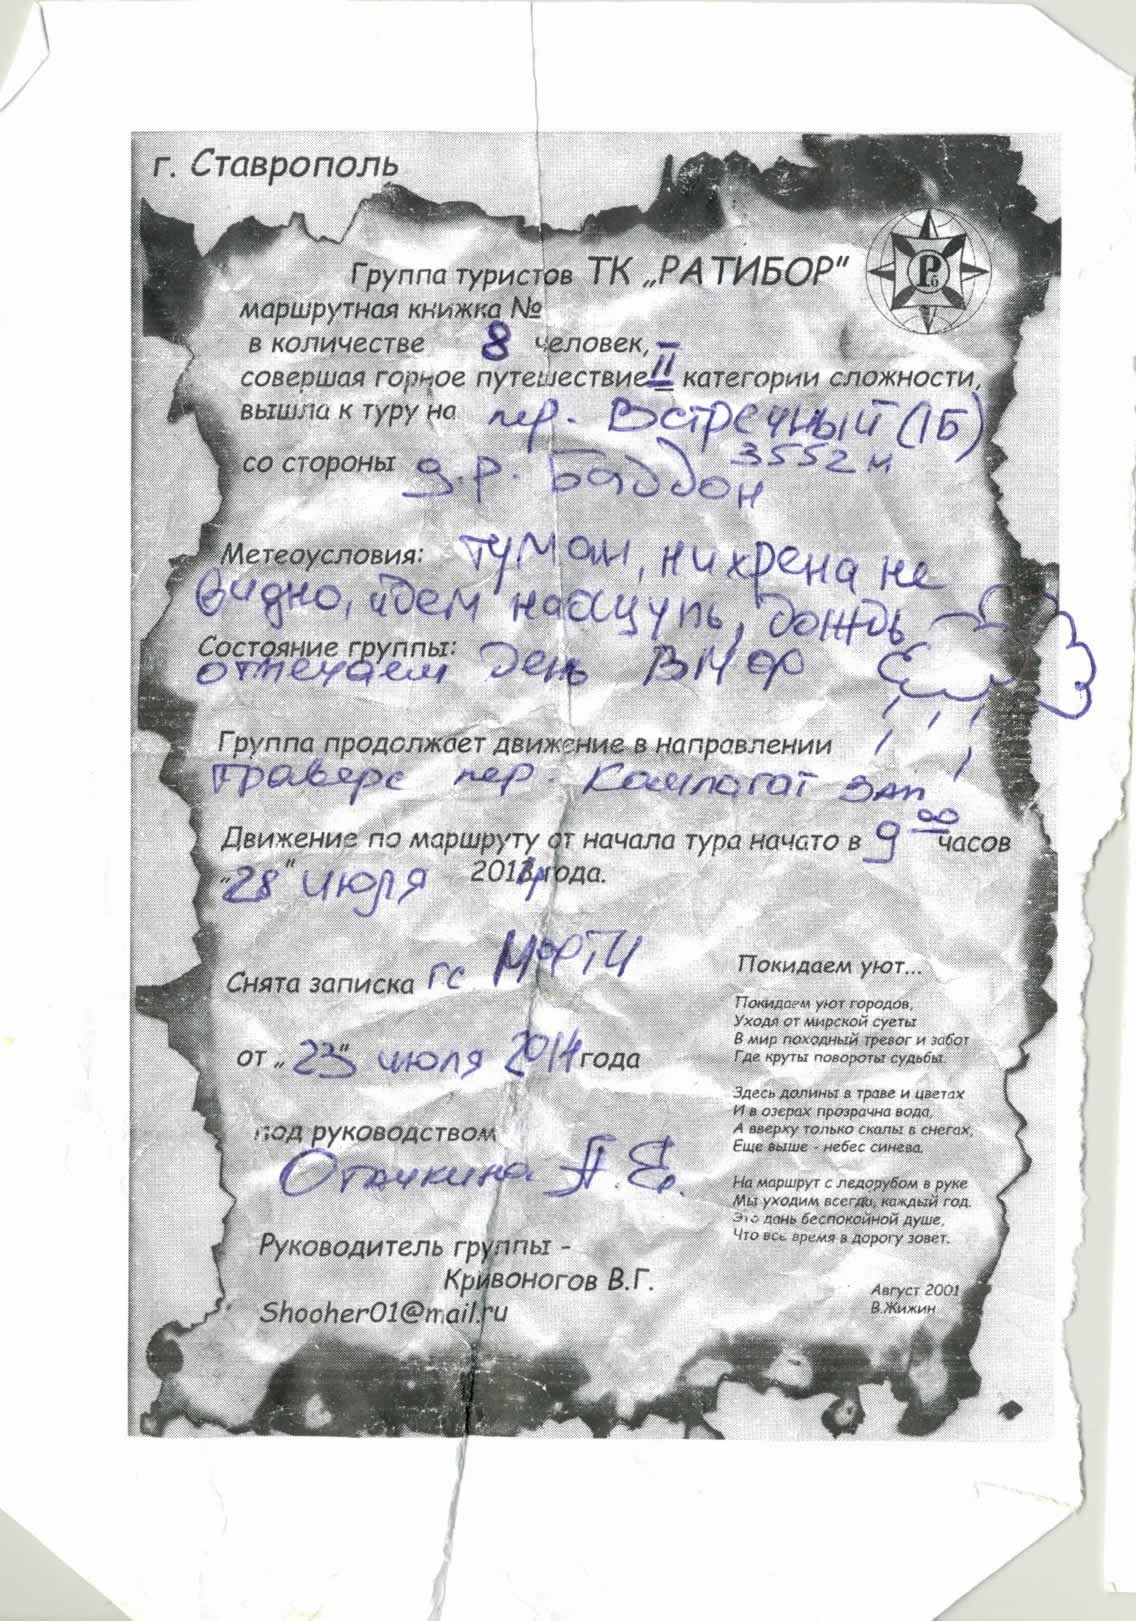 г. Ставрополь
Рб
Группа туристов ТК „РАТИБОР"
маршрутная книжка №
в количестве 8 человек,
совершая горное путешествие II категории сложности,
вышла к туру на пер. Встречный (1Б)
3552 м
со стороны д.р. Баддон
Метеоусловия: туман, нихрена не
видно, идем наощупь, дождь
Состояние группы:
отмечаем день ВМФ
Группа продолжает движение в направлении
траверс пер. Камлагат Зап
Движение по маршруту от начала тура начато в 9 00 часов
„28" июля 2014 года.
Снята записка гс МФТИ
от „23" июля 2014 года
под руководством
Отачкина П.Е.
Руководитель группы -
Кривоногов В.Г.
Shooher01@mail.ru
Покидаем уют...
Покидаем уют городов,
Уходя от мирской суеты
В мир походный тревог и забот
Где круты повороты судьбы.
Здесь долины в траве и цветах
И в озерах прозрачна вода,
А вверху только скалы в снегах,
Еще выше - небес синева.
На маршрут с ледорубом в руке
Мы уходим всегда, каждый год.
Это дань беспокойной душе,
Что все время в дорогу зовет.
Август 2001
В.Жижин